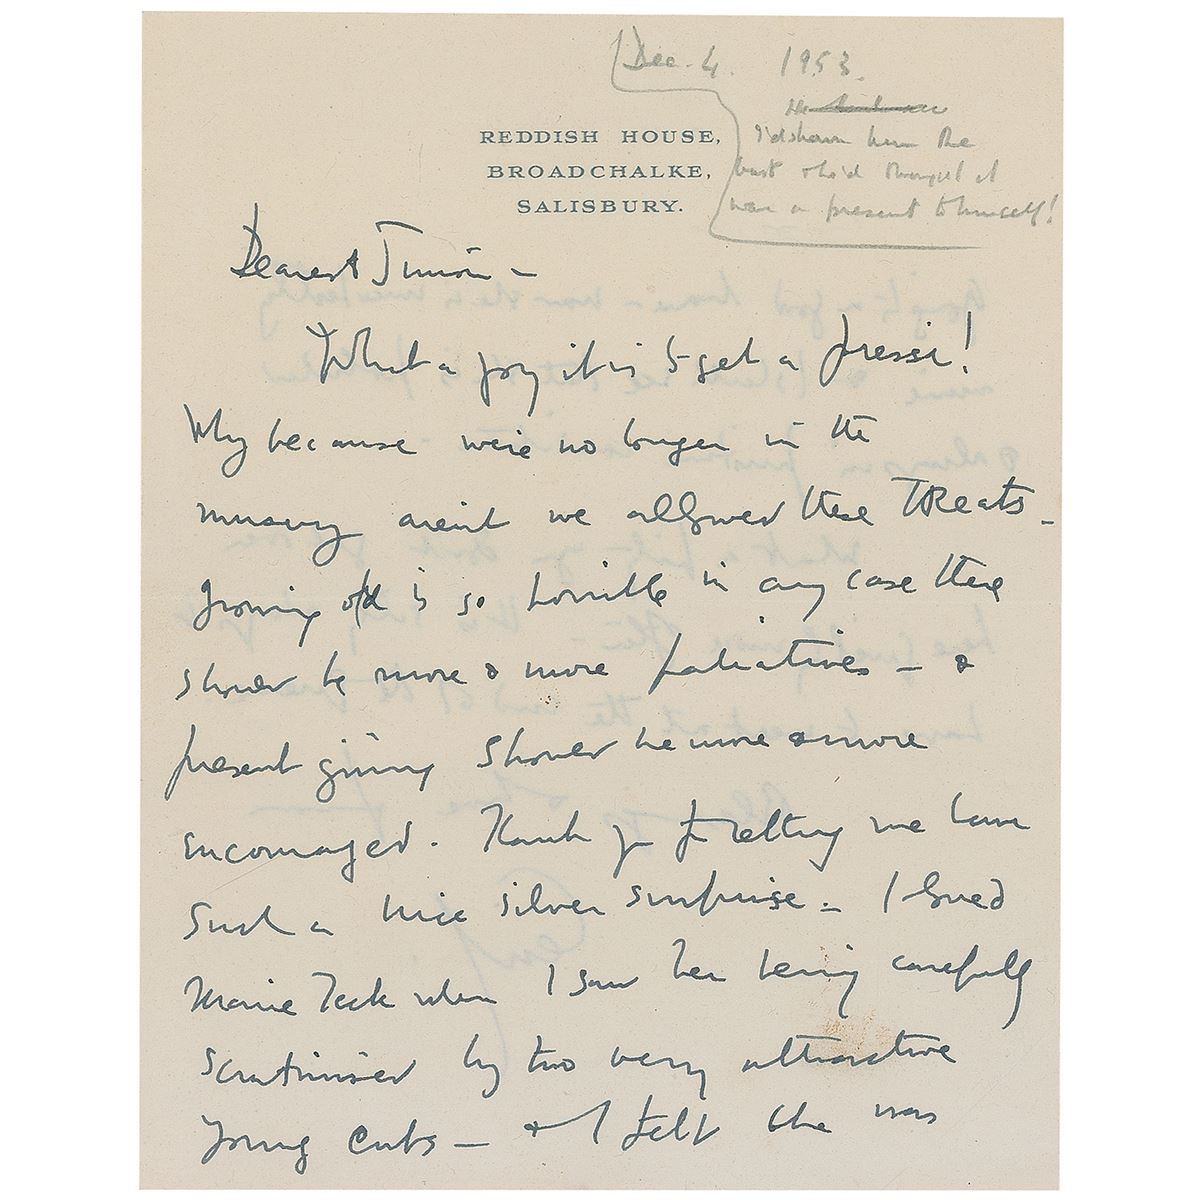 Dec. 4. 1953.
I'd shown him the
bust & he'd thought it
was a present to himself!
REDDISH HOUSE,
BROADCHALKE,
SALISBURY.
Dearest
What a joy it is to get a pressie!
Why because we're no longer in the
nursery aren't we allowed these TREATS –
Growing old is so horrible in any case there
should be more & more paliatives – &
present giving should be more & more
encouraged. Thank you for letting me have
such a nice silver surprise – I loved
Marie Teck when I saw her being carefully
scrutinised by two very attractive
young cubs – & I felt she was